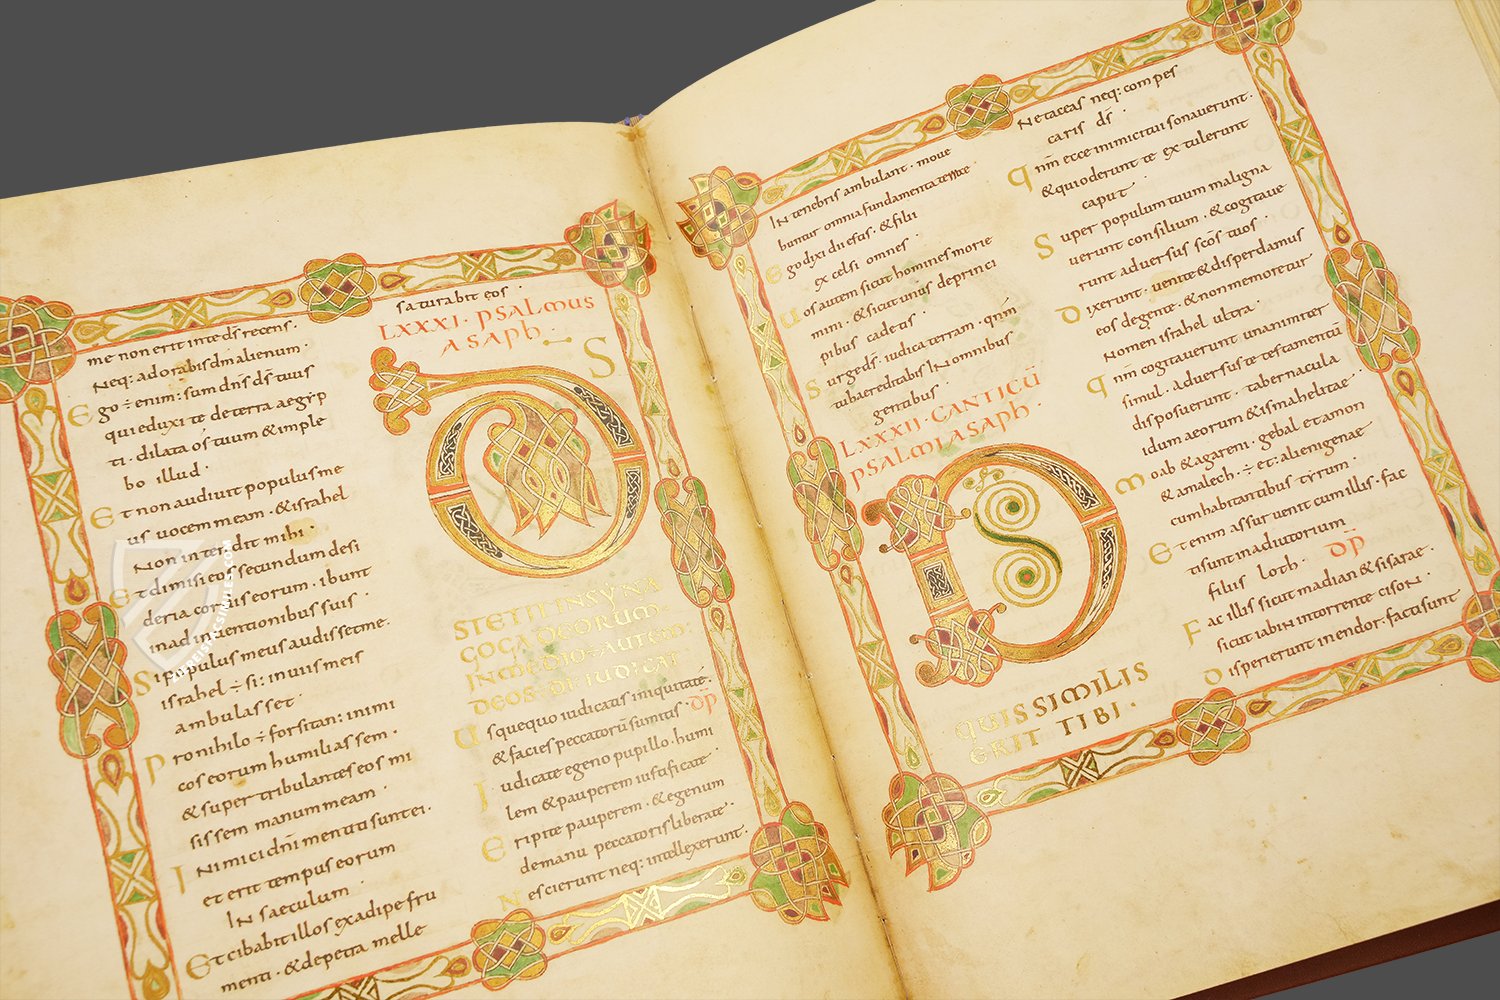 me non erit inte ds recens·
Neq: adorabis dm alienum·
Ego ÷ enim: sum dns ds tuus
qui eduxi te deterra aegyp
ti· dilata os tuum & imple
bo illud·
Et non audiuit populus me
us uocem meam· & israhel
Non intendit mihi
Et dimisi eos secundum desi
deria cordis eorum· ibunt
in adinuentionibus suis·
Si populus meus audisset me·
israhel ÷ si: in uiis meis
ambulasset·
Pro nihilo ÷ forsitan: inimi
cos eorum humiliassem·
& super tribulantes eos mi
sissem manum meam·
Inimici dni mentiti sunt ei·
et erit tempus eorum
IN saeculum·
Et cibabit illos ex adipe fru
menti· & de petra melle
saturabit eos·
LXXXI· PSALMUS
ASAPH·
DS
STETIT IN SYNA
GOGA DEORUM·
IN MEDIO AUTEM
DEOS· DIIUDICAT
Usquequo iudicatis iniquitate·
& facies peccatorū sumitis· DP
Iudicate egeno pupillo· humi
lem & pauperem iustificate
Eripite pauperem· & egenum
demanu peccatoris liberate·
Nescierunt neq: intellexerunt·
IN tenebris ambulant· moue
buntur omnia fundamenta terrae
Ego dixi dii estis· & filii
excelsi omnes·
Uos autem sicut homines morie
mini· & sicut unus deprinci
pibus cadetis·
Surge ds· iudica terram· qnm
tu hereditabis IN omnibus
gentibus·
LXXXII· CANTICŪ
PSALMI ASAPH·
DS
QUIS SIMILIS
ERIT TIBI·
Ne taceas neq: compes
caris ds·
Qnm ecce inimici tui sonauerunt·
& qui oderunt te extulerunt
caput·
Super populum tuum maligna
uerunt consilium· & cogitaue
runt aduersus scos tuos·
Dixerunt· uenite & disperdamus
eos degente· & non memoretur
Nomen israhel ultra·
Qnm cogitauerunt unanimiter
simul· aduersus te testamentū
disposuerunt· tabernacula
idumaeorum & ismahelitae·
Moab & agareni· gebal et amon
& amalech· ÷ et: alienigenae
cum habitantibus tyrum·
Etenim assur uenit cum illis· fac
ti sunt in adiutorium
filiis loth· DP
Fac illis sicut madian & sisarae·
sicut iabin in torrente cison·
Disperierunt in endor· facti sunt